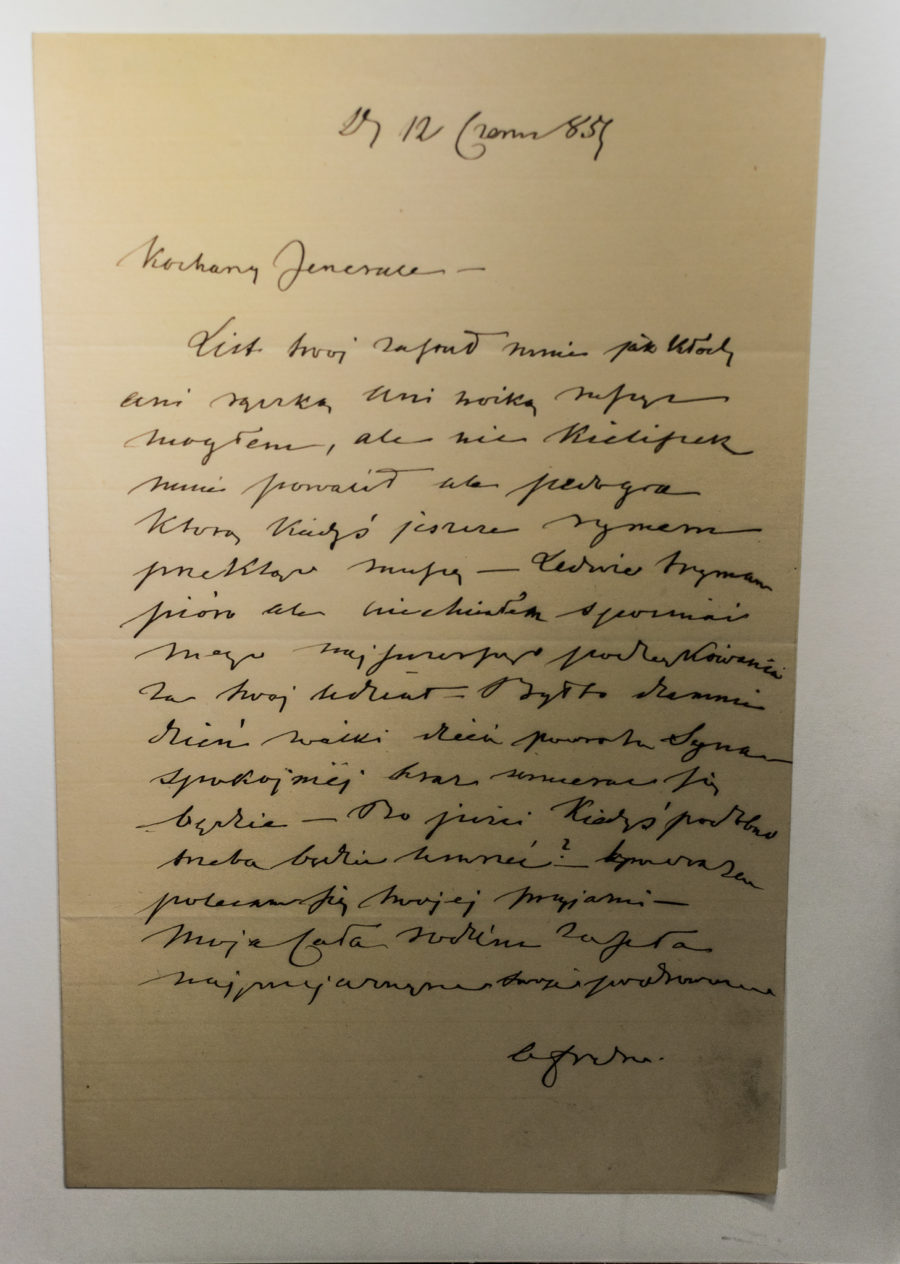 D 12 Czerw 857
Kochany Jenerale —
List twoj zastał mnie jak kłodę
ani rączką ani nóżką ruszyć
mogłem, ale nie Kieliszek
mnie powalił ale pedogra
Którą kiedyś jeszcze rymem
przekląć muszę — Ledwie trzymam
pióro ale niechciałem spozniać
mego najszczerszego podziękowania
za twoj udział — Był to dlamnie
dzień walki dzień powrotu Syna
spokojniéj teraz umierać się
będzie — Bo juści Kiedyś podobno
trzeba będzie umrzeć? —
polecam się twojej przyjazni —
Moja Cała rodzina zasyła
najprzyjazniejsze swoje pozdrowienie
AFredro.